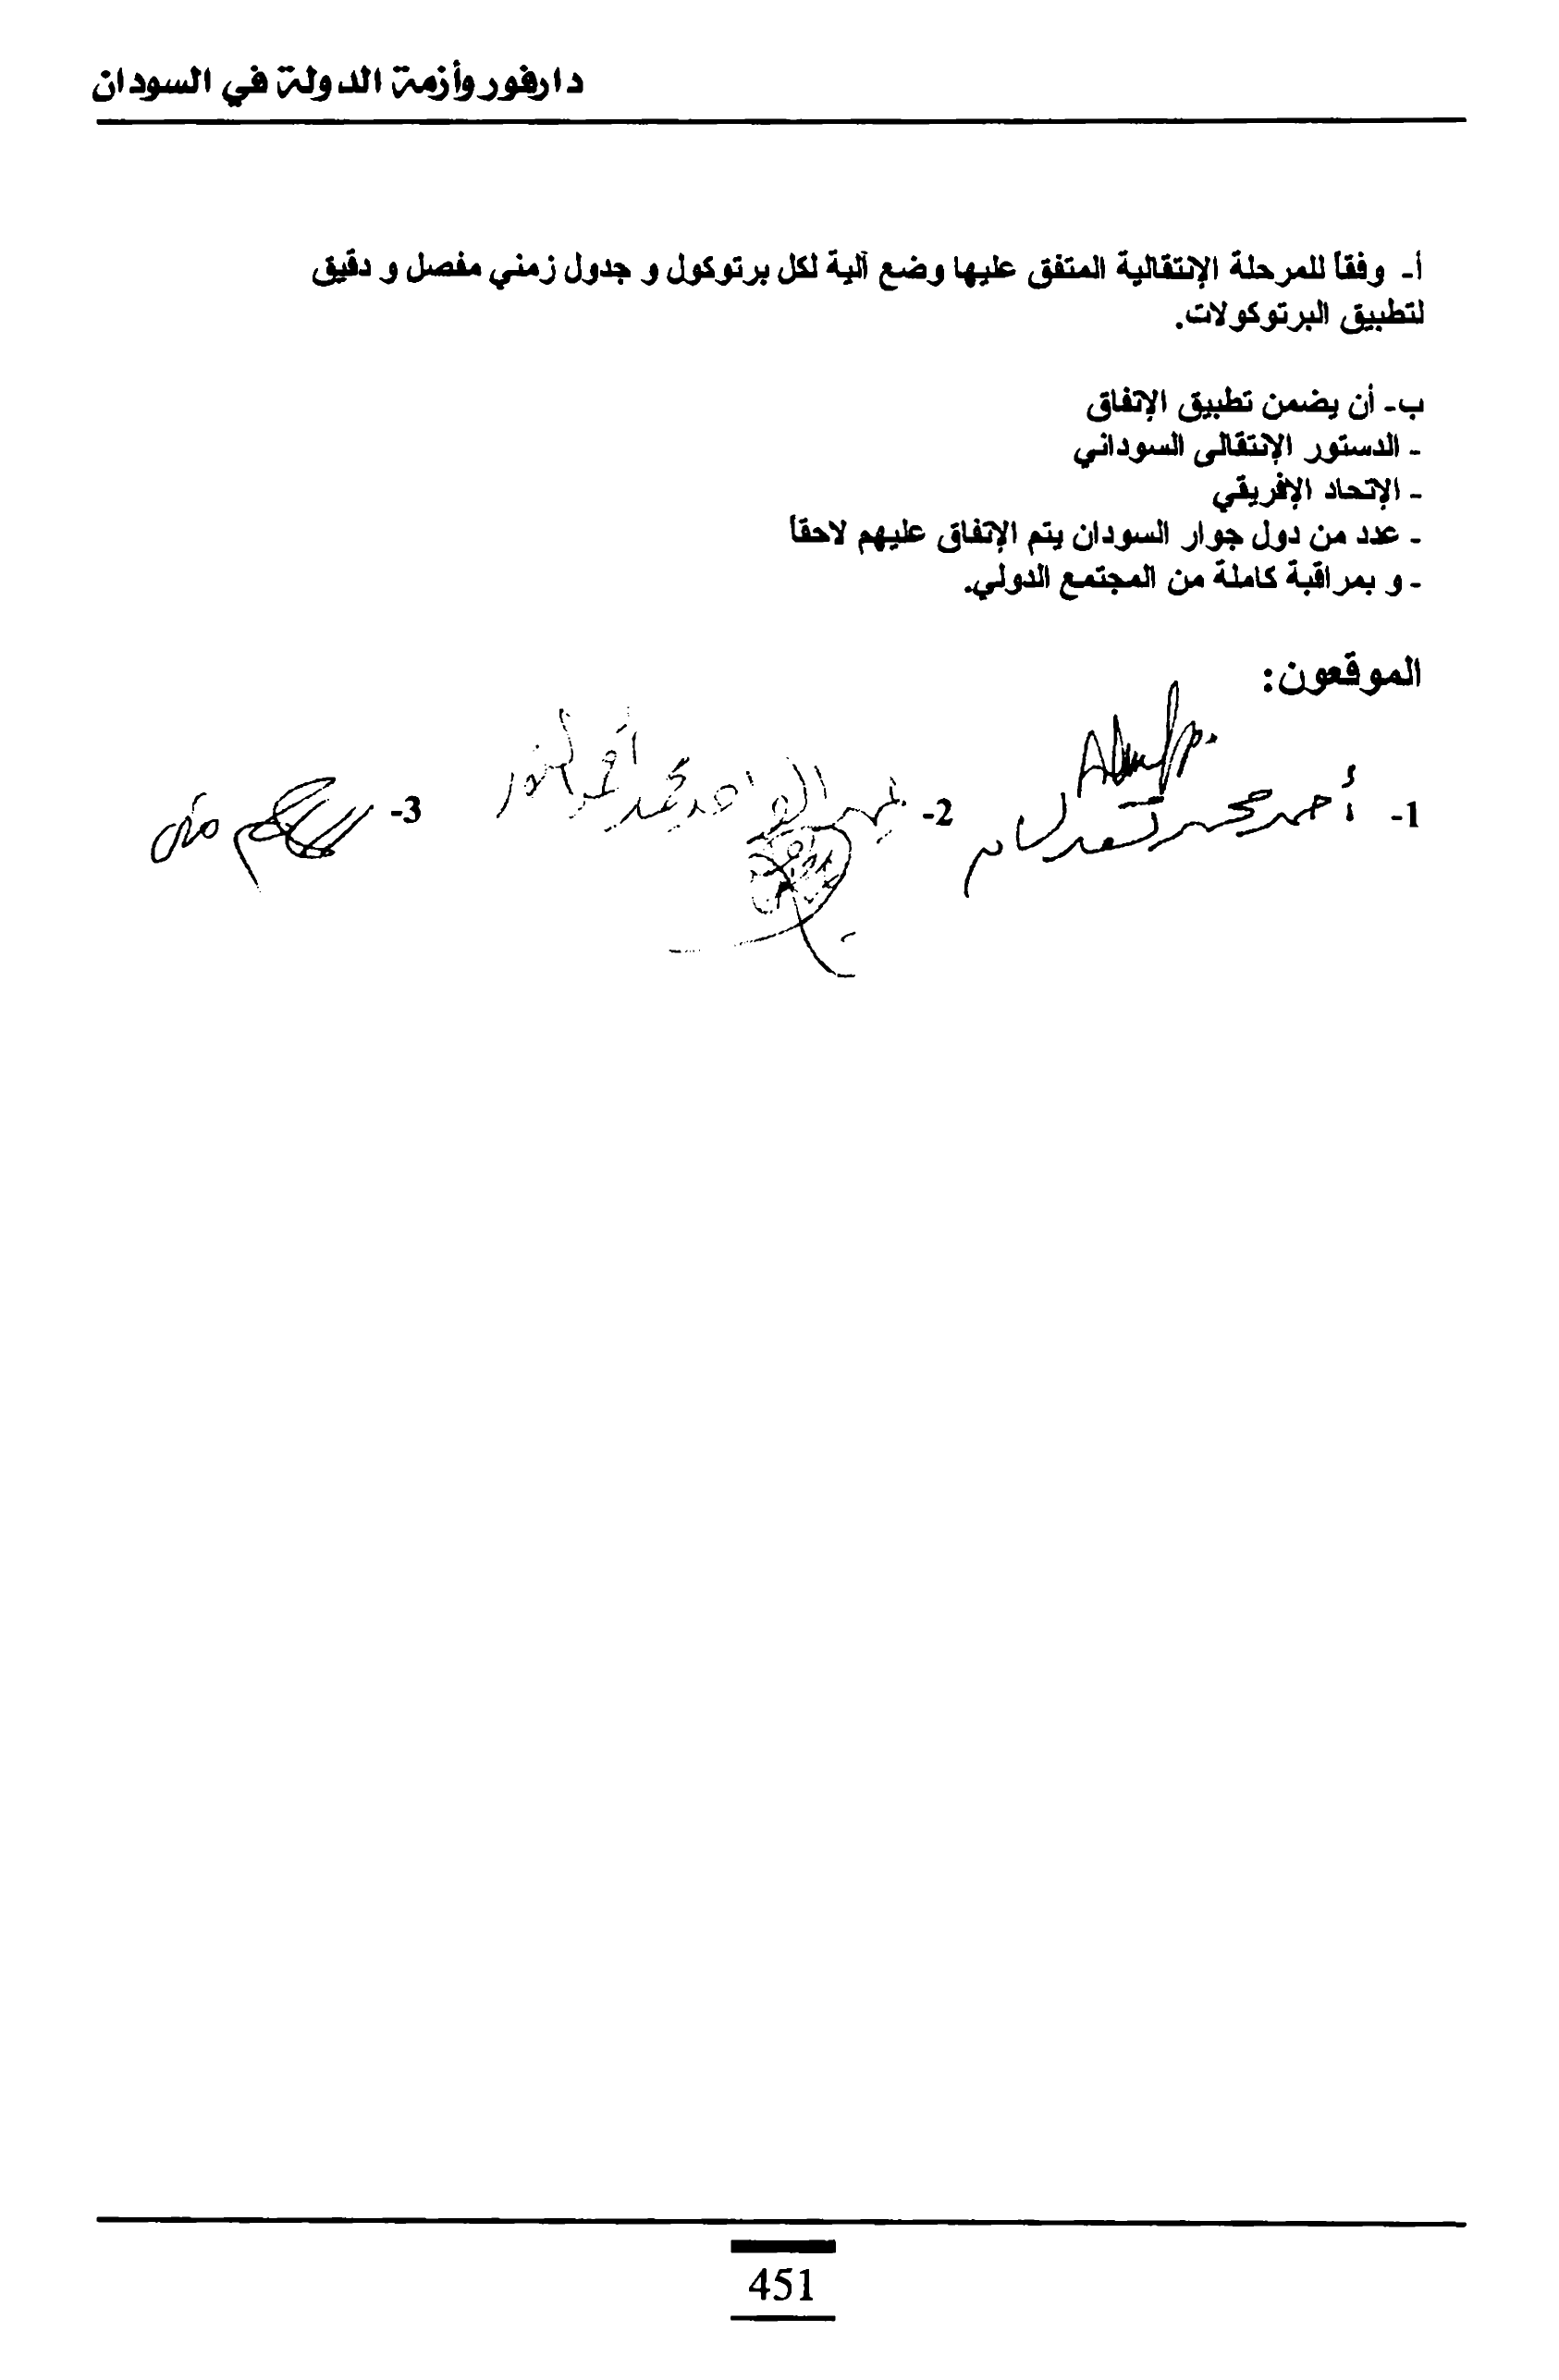 دارفور وأزمة الدولة في السودان
أ- وفقاً للمرحلة الإنتقالية المتفق عليها وضع آلية لكل برتوكول و جدول زمني مفصل و دقيق
لتطبيق البرتوكولات.
ب- أن يضمن تطبيق الإتفاق
- الدستور الإنتقالى السوداني
- الإتحاد الإفريقي
- عدد من دول جوار السودان يتم الإتفاق عليهم لاحقاً
- و بمراقبة كاملة من المجتمع الدولي.
الموقعون:
1- أحمد محمد
2- عبد الواحد محمد أحمد النور
3-
451